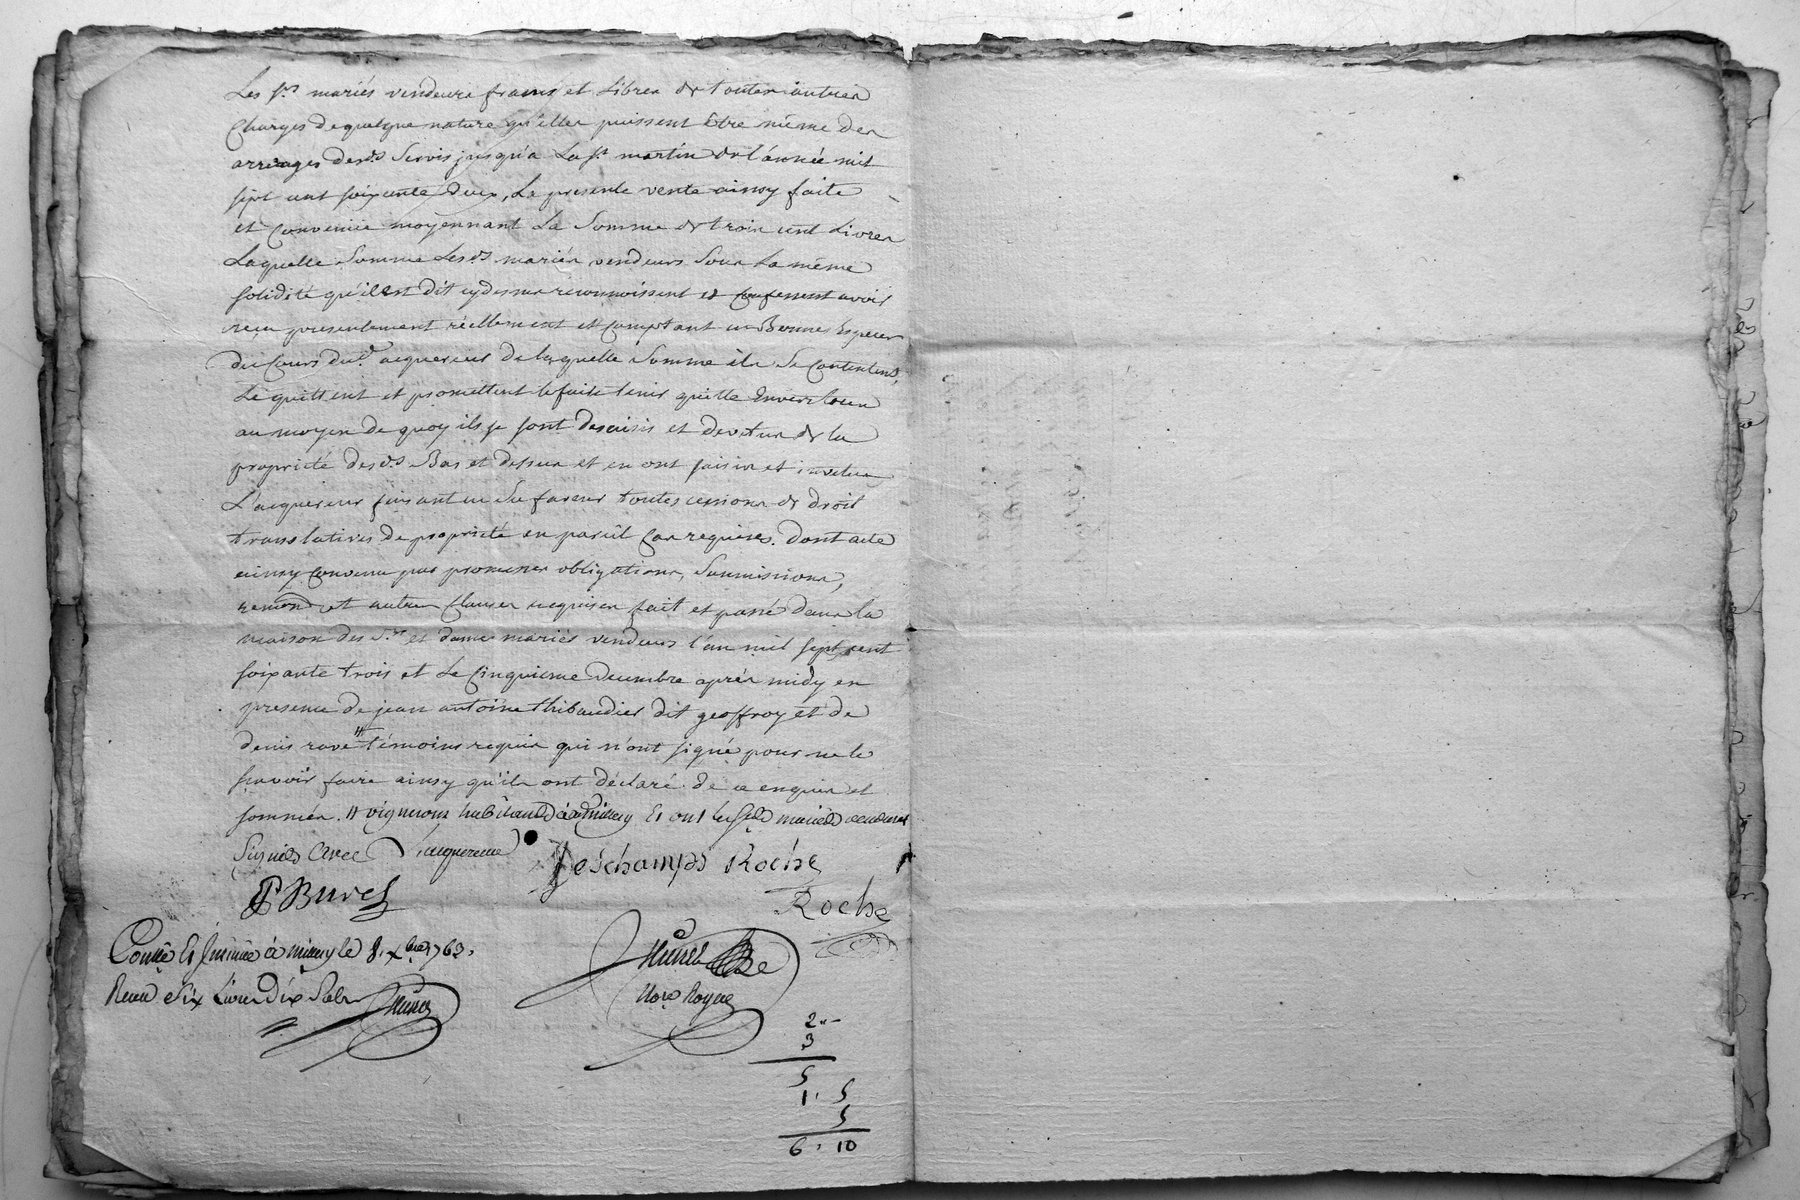 Les Srs mariés vendeurs francs et Libres de toutes autres
Charges de quelque nature qu'elles puissent être même des
arrerages desds Servis jusqu'a La St martin de l'année mil
sept cent soixante deux, La presente vente ainsy faite
et Convenüe moyennant La Somme de trois cent Livres
Laquelle Somme Lesds mariés vendeurs Sous La même
solidité qu'il est dit cydessus reconnoissent et confessent avoir
reçu presentement réellement et Comptant en Bonnes Especes
du Cours dud. acquereur de laquelle Somme ils Se Contentent,
Le quittent et promettent le faire tenir quitte Envers tous
au moyen de quoy ils se sont desaisis et devetus de la
propriété desds Bas et dessus et en ont saisis et investus
L'acquereur faisant en Sa faveur toutes cessions de droit
translatives de propriété en pareil Cas requises. Dont acte
ainsy Convenu par promesses obligations, Soumissions,
renond. et autres Clauses requises fait et passé dans la
maison des Srs et dame mariés vendeurs l'an mil sept cent
soixante trois et Le Cinquieme Decembre après midy en
presence de jean antoine thibaudier dit geoffroy et de
denis rave # témoins requis qui n'ont signé pour ne le
sçavoir faire ainsy qu'ils ont déclaré de ce enquis et
sommés. # vignerons habitants à Et ont lesds mariés vendeurs
Signés avec l'acquereur
Deschamps Roche
PBurel
Roche
Contlé Et Insinué à le 8. xbre 1763.
Reçu Six Livres Dix Sols
Nore Royal
2 " -
3
5
1. 5
5
6. 10